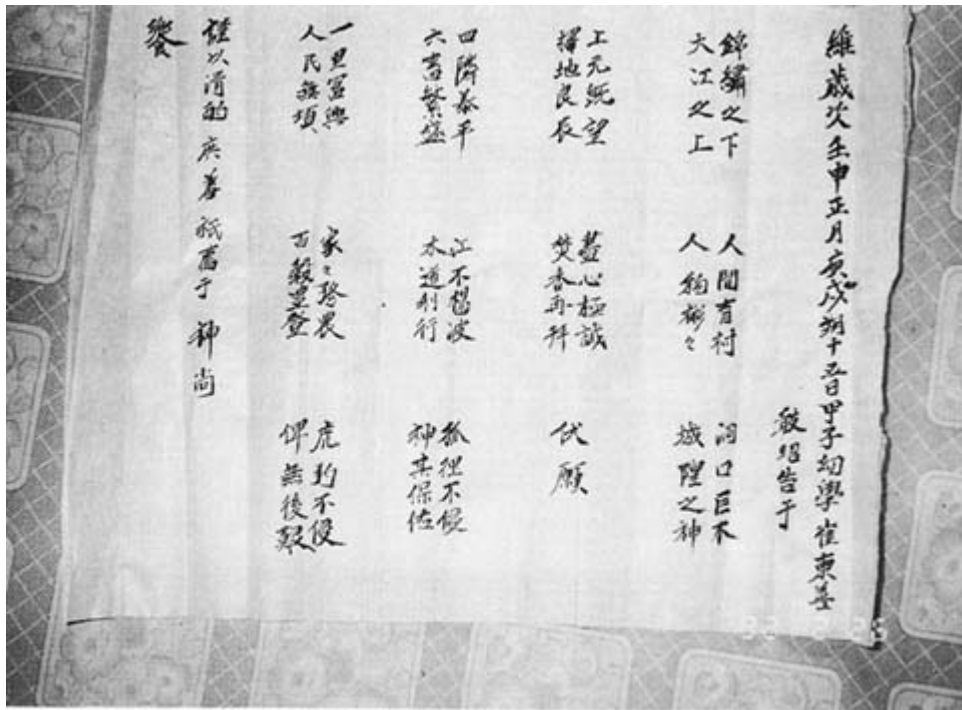 維歲次壬申正月庚戌朔十五日甲子幼學崔東基
敢昭告于
錦繡之下 人間有村 洞口巨木
大江之上 人物彬々 城隍之神
上元既望 盡心極誠 伏願
擇地良辰 焚香再拜
四隣泰平 江不揚波 狐狸不侵
六畜繁盛 水道利行 神其保佑
一里富興 家々 虎豹不侵
人民無 百穀豊登 俾無後艱
謹以清酌 庶羞祗薦于 神尙
饗